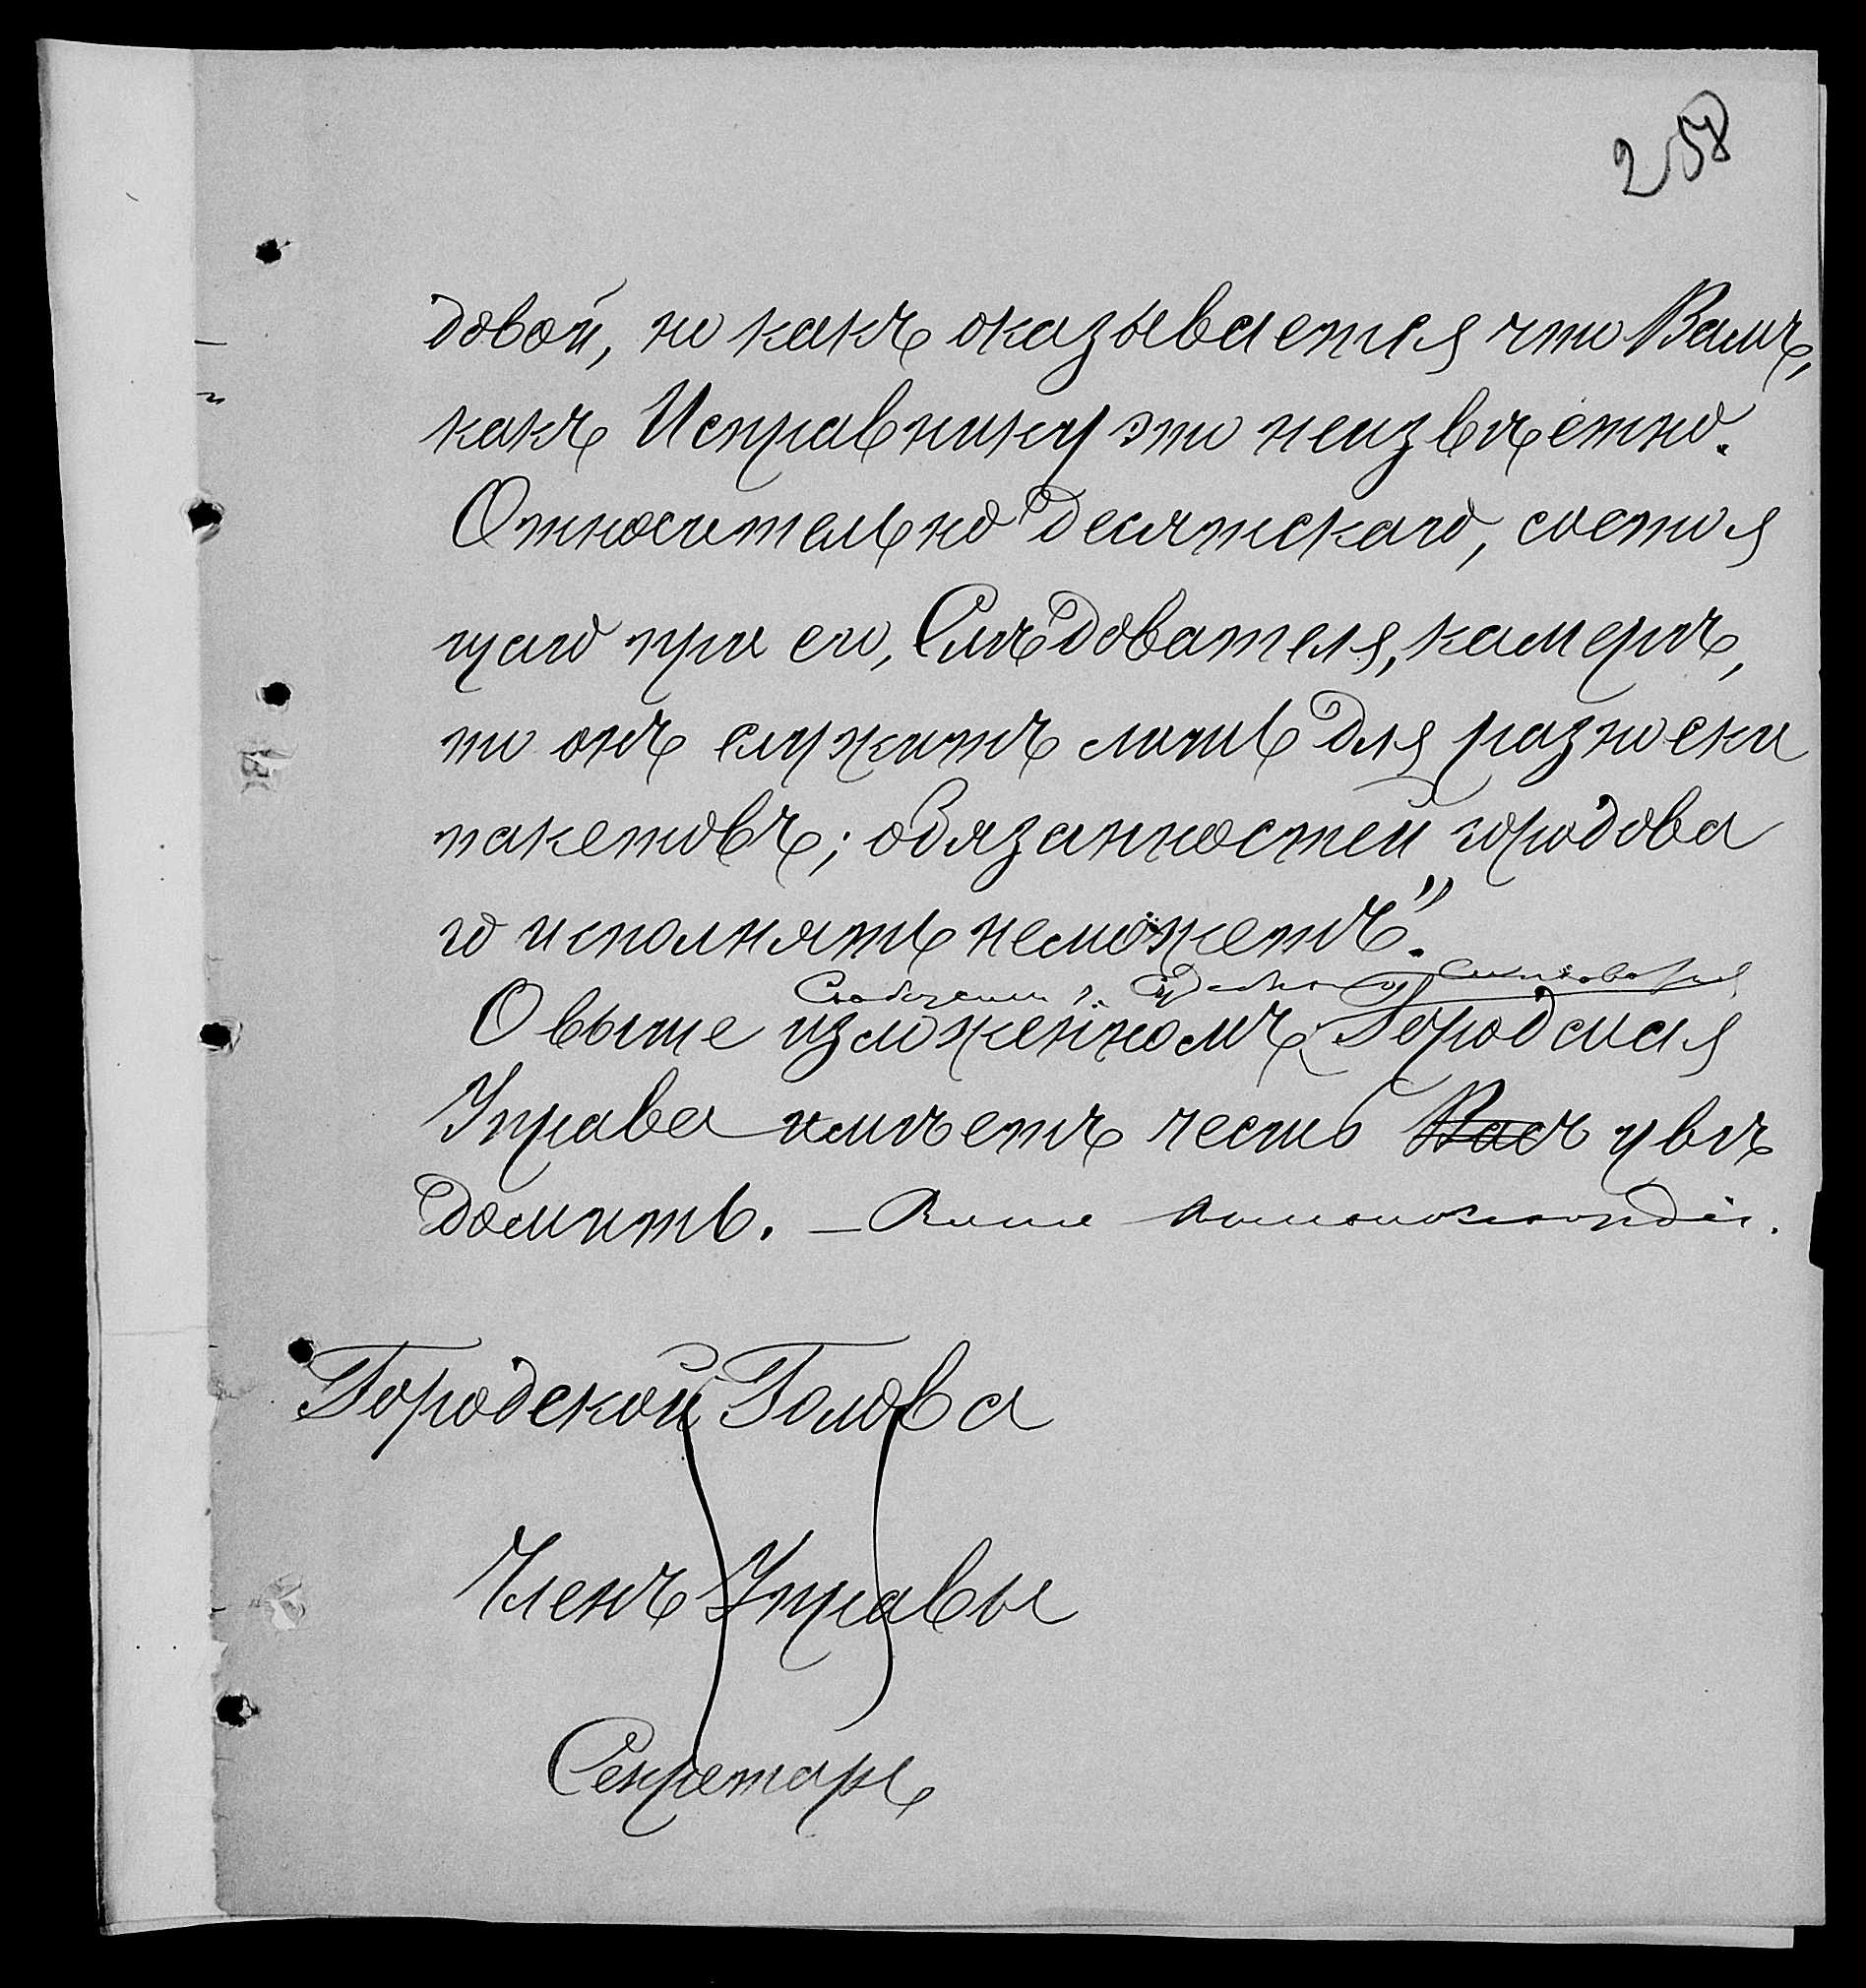 258
довой, но какъ оказывается что Вамъ,
какъ Исправнику это неизвѣстно.
Относительно десятскаго, состоя
щаго при его, Слѣдователя, камерѣ,
то онъ служитъ лишь для разноски
пакетовъ; обязанностей городова
го исполнять неможетъ".
Сообщении г. Судебнаго Слѣдователя
О выше изложенномъ Городская
Управа имѣетъ честь Васъ увѣ
домить. — Ваше
Городской Голова
Членъ Управы
Секретарь